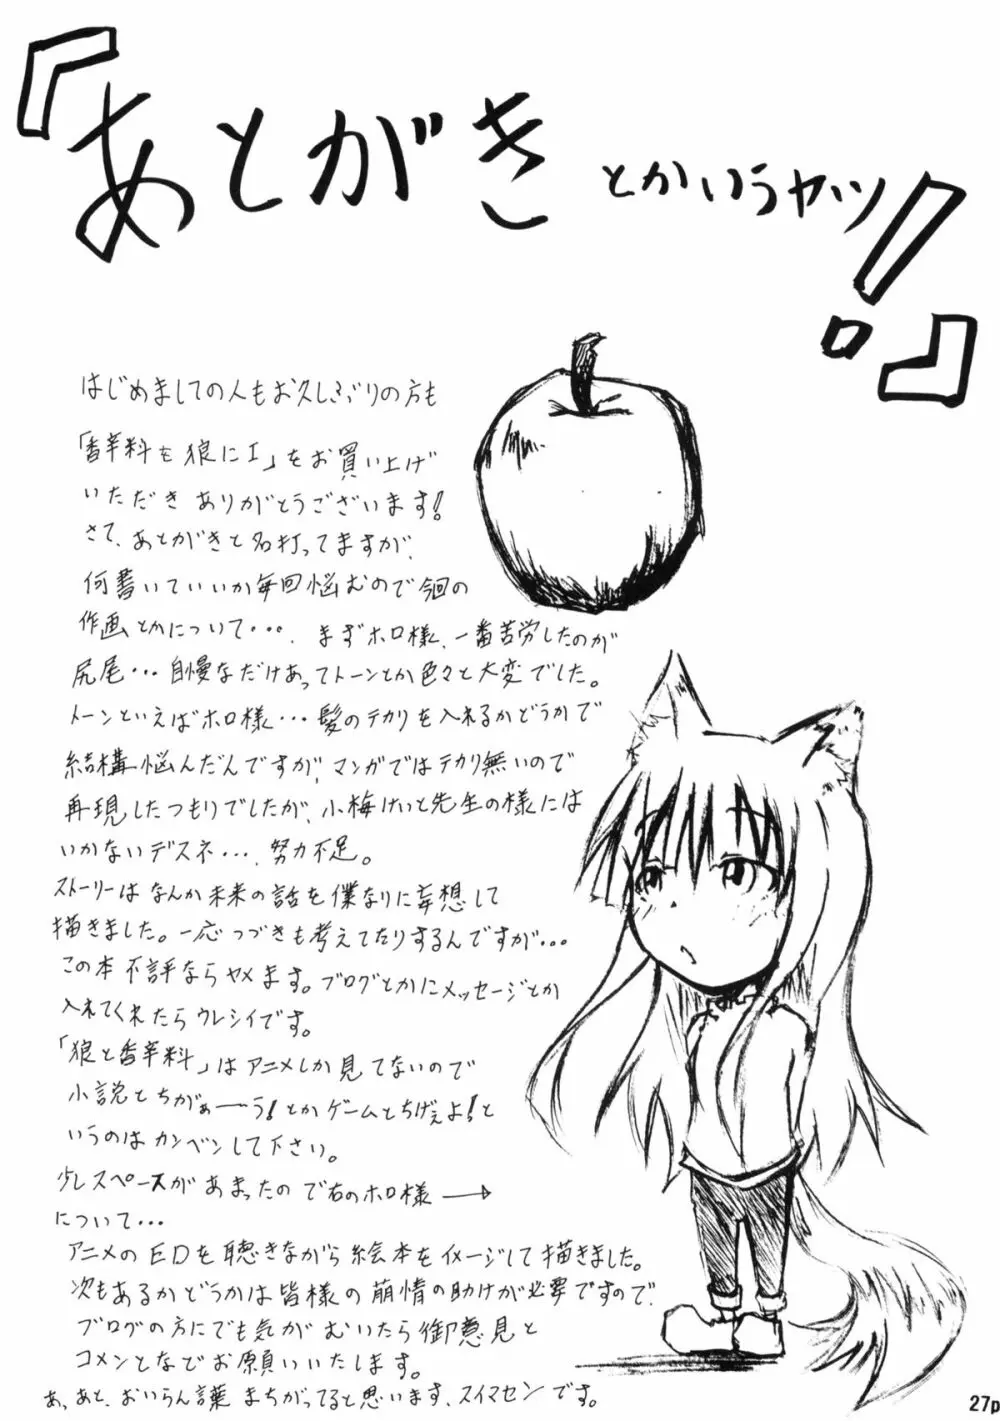 『あとがきとかいうヤツ!』
はじめましての人もお久しぶりの方も
「香辛料を狼にI」をお買い上げ
いただきありがとうございます!
さて、あとがきと名打ってますが、
何書いていいか毎回悩むので今回の
作画とかについて・・・、まずホロ様、一番苦労したのが
尻尾・・・自慢なだけあってトーンとか色々と大変でした。
トーンといえばホロ様・・・髪のテカリを入れるかどうかで
結構悩んだんですが、マンガではテカリ無いので
再現したつもりでしたが、小梅けいと先生の様には
いかないデスネ・・・、努力不足。
ストーリーはなんか未来の話を僕なりに妄想して
描きました。一応つづきも考えてたりするんですが・・・
この本不評ならヤメます。ブログとかにメッセージとか
入れてくれたらウレシイです。
「狼と香辛料」はアニメしか見てないので
小説とちがぁーう!とかゲームとちげぇよ!と
いうのはカンベンして下さい。
少しスペースがあまったので右のホロ様→
について・・・
アニメのEDを聴きながら絵本をイメージして描きました。
次もあるかどうかは皆様の萌情の助けが必要ですので、
ブログの方にでも気がむいたら御意見と
コメンとなでお願いいたします。
あ、あと、おいらん言葉まちがってると思います、スイマセンです。
27p